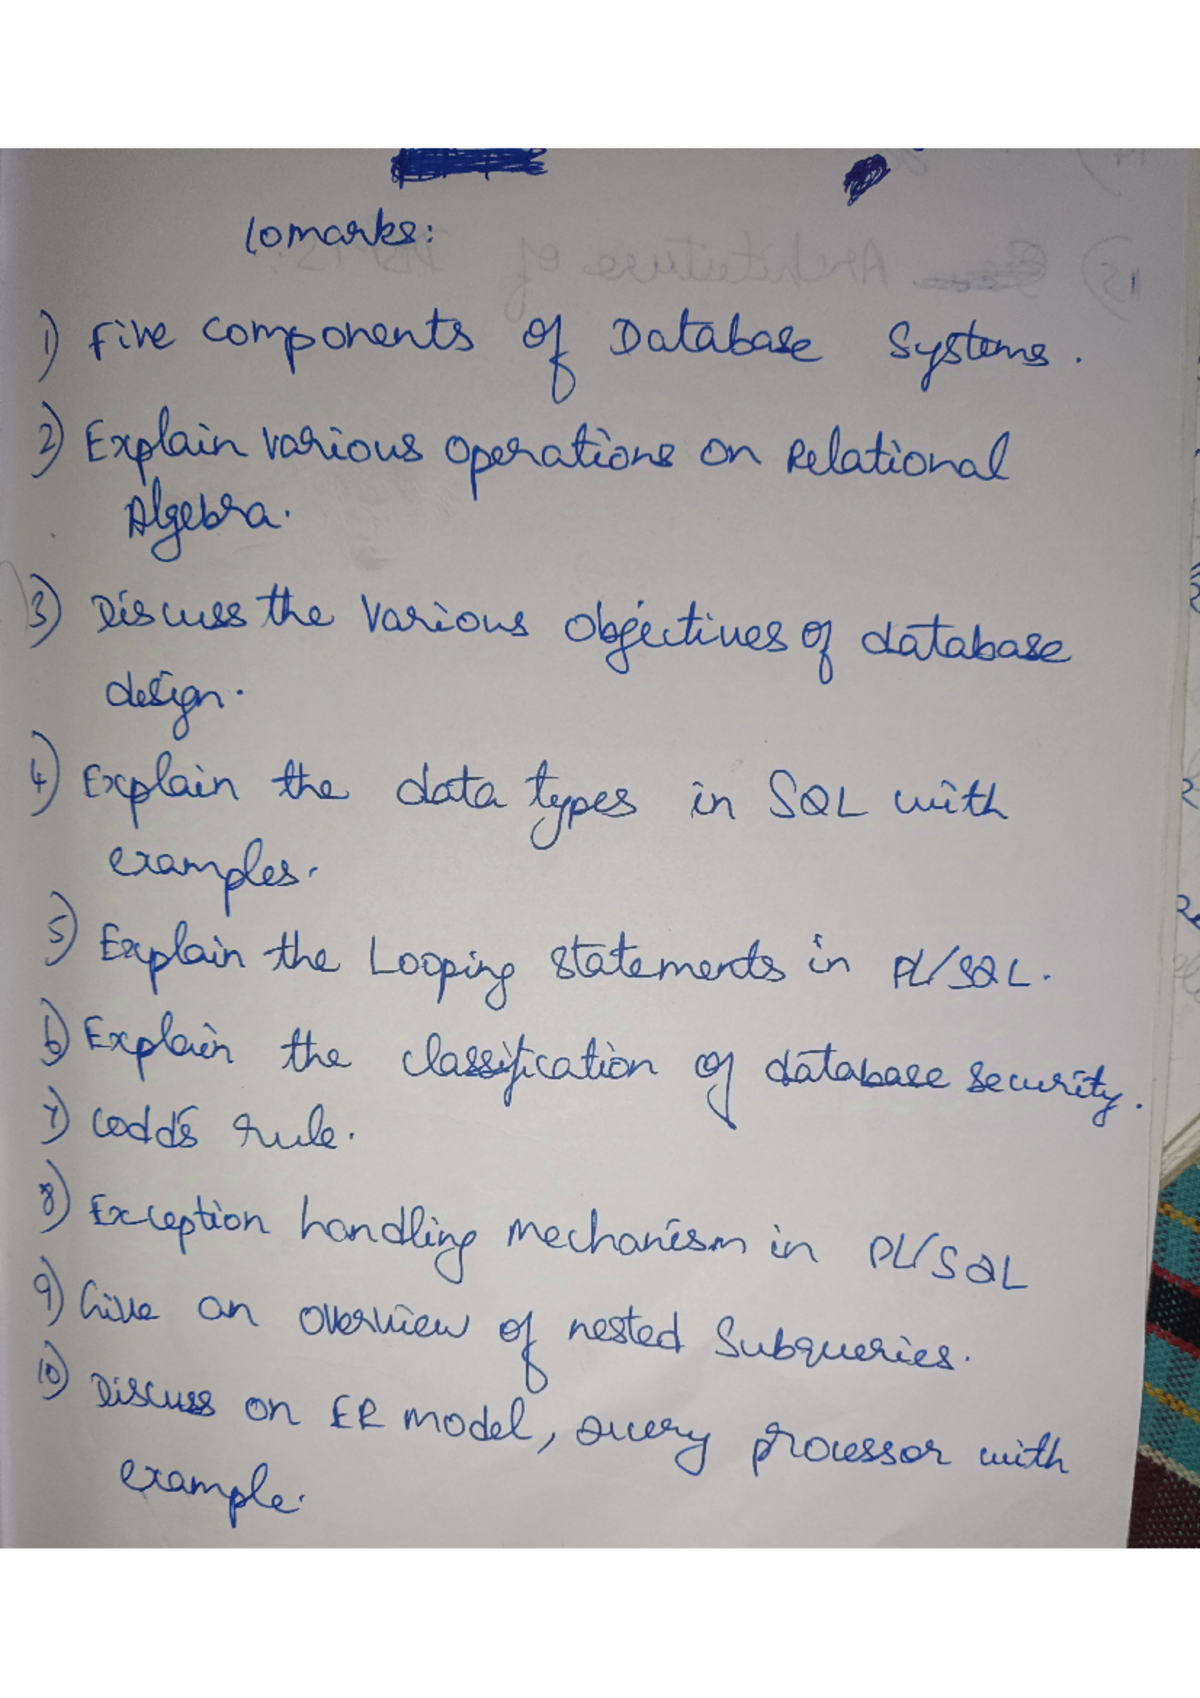 10marks:
1) Five components of Database Systems.
2) Explain various operations on Relational
Algebra.
3) Discuss the various objectives of database
design.
4) Explain the data types in SQL with
examples.
5) Explain the Looping statements in PL/SQL.
6) Explain the classification of database security.
7) Codd's rule.
8) Exception handling mechanism in PL/SQL
9) Give an overview of nested Subqueries.
10) Discuss on ER model, query processor with
example.